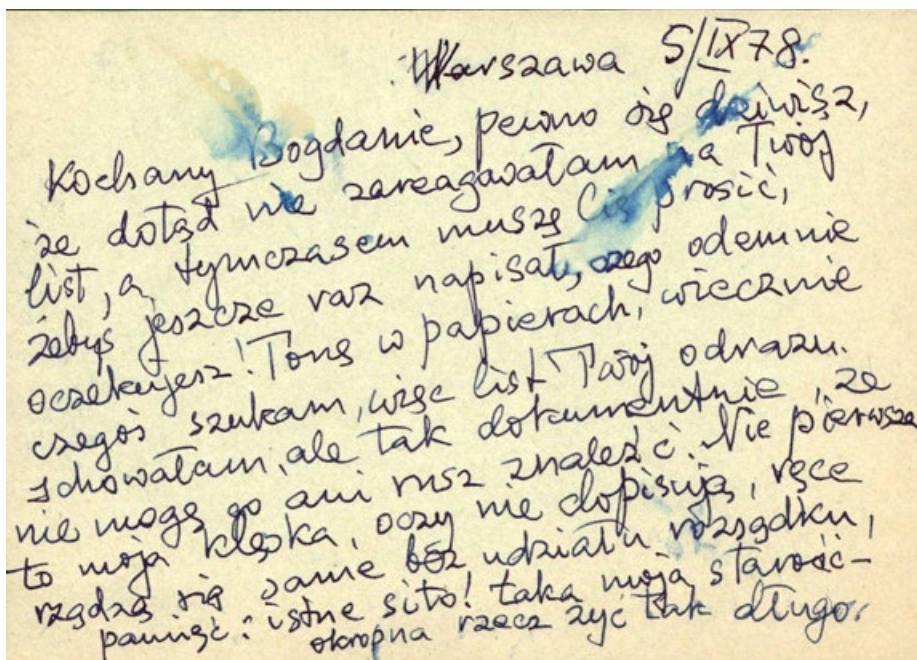 Warszawa 5/IX78.
Kochany Bogdanie, pewno się dziwisz,
że dotąd nie zareagawałam na Twój
list, a tymczasem muszę Cię prosić,
żebyś jeszcze raz napisał, czego odemnie
oczekujesz! Tonę w papierach, wiecznie
czegoś szukam, więc list Twój odrazu
schowałam, ale tak dokumentnie, że
nie mogę go ani rusz znaleźć. Nie pierwsza
to moja klęska, oczy nie dopisują, ręce
rządzą się same bez udziału rozsądku,
pamięć: istne sito! taka moja starość-
okropna rzecz żyć tak długo.